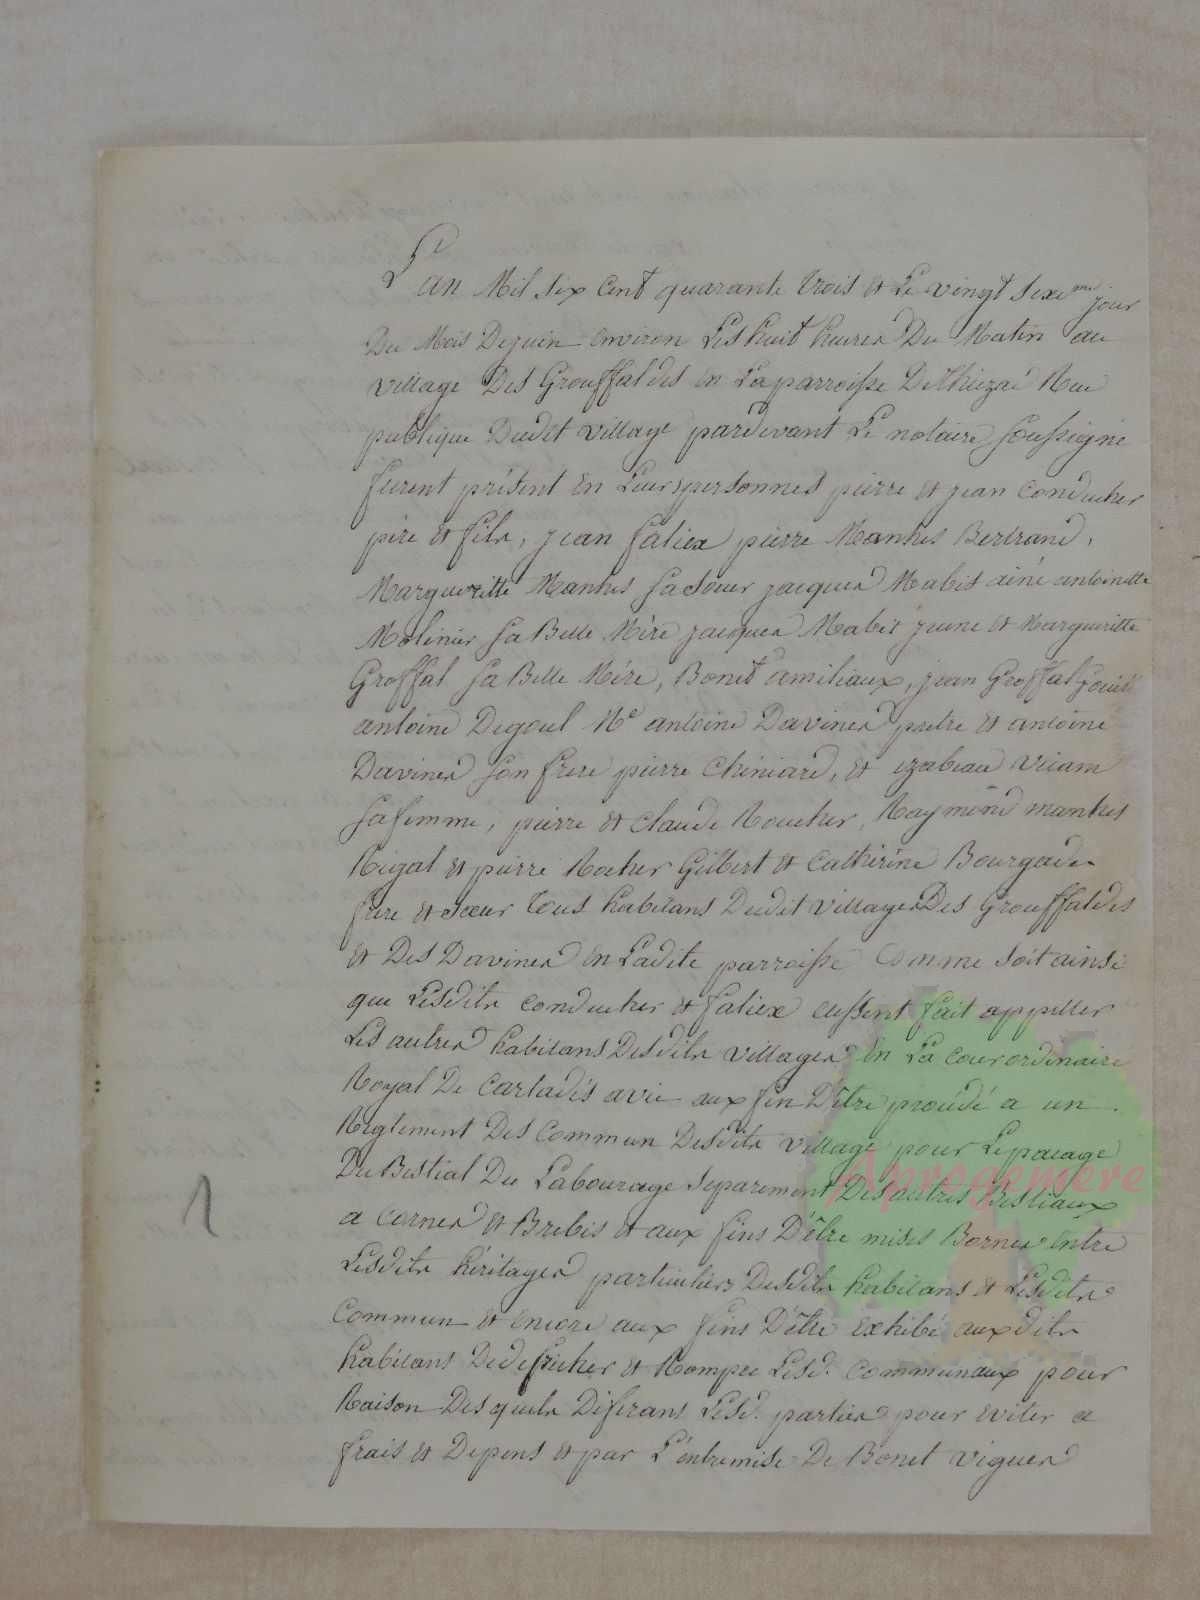 L'an Mil six Cent quarante trois et Le vingt sixe me jour
Du Mois Dejuin environ Les huit heures Du Matin au
village Des Grouffaldes en Laparroisse DeThiezac Rue
publique Dudit village pardevant Le notaire soussigné
furent présent en Leurs personnes pierre et jean Conducher
père et fils, jean faliex pierre Manhes Bertrand,
Margueritte Manhes sa soeur jacques Mabit ainé antoinette
Molinier sa Belle Mère jacques Mabit jeune et Margueritte
Groffal sa Belle Mére, Bonet amiliaux, jean Groffal
antoine Degoul Me antoine Davines pretre et antoine
Davines son frere pierre Chiniard, et izabeau
safemme, pierre et Claude Roucher, Raymond manhes
Rigal et pierre Rocher Gilbert et Catherine Bourgades
frere et soeur tous habitans Dudit village Des Grouffaldes
et Des Davines en Ladite parroisse Comme soit ainsi
que Lesdits conducher et faliex eussent fait appeller
Les autres habitans Desdits villages en La cour ordinaire
Royal De Carladés a vic aux fin D'être procédé a un
Reglement Des Commun Desdits village pour Lepacage
Du Bestial Du Labourage separement Des autres Bestiaux
a cornes et Brebis et aux fins D'être mises Bornes entre
Lesdits héritages particuliers Desdits habitans et Lesdits
Commun et encore aux fins D'être exhibé auxdits
habitans Dedefricher et Rompre Lesd. Communaux pour
Raison Desquels Diferans Lesd. parties pour eviter a
frais et Depens et par L'entremise De Bonet Viguer
1
Aprogemere